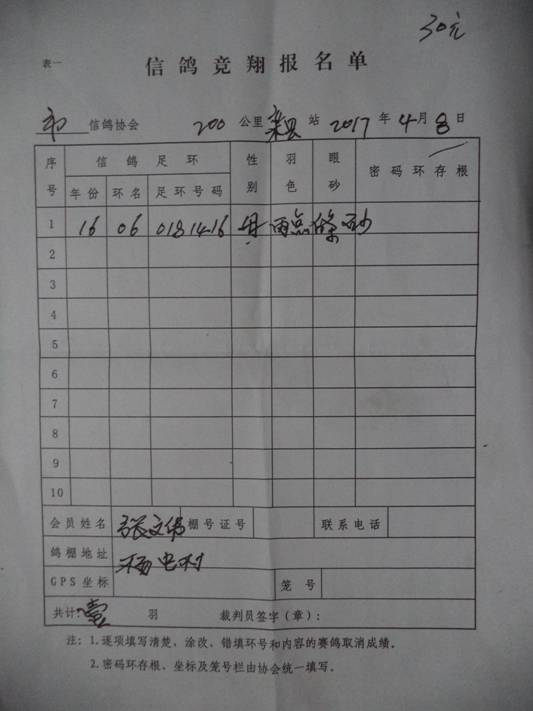 30元
表一
信鸽竞翔报名单
市 信鸽协会 200 公里 栾县 站 2017 年 4 月 8 日
序号 信鸽足环 性别 羽色 眼砂 密码环存根
年份 环名 足环号码
1 16 06 0181416 母 雨点 砂
2
3
4
5
6
7
8
9
10
会员姓名 张文伟 棚号证号 联系电话
鸽棚地址 杨屯村
GPS坐标 笼号
共计: 壹 羽 裁判员签字(章):
注: 1.逐项填写清楚、涂改、错填环号和内容的赛鸽取消成绩。
2.密码环存根、坐标及笼号栏由协会统一填写。